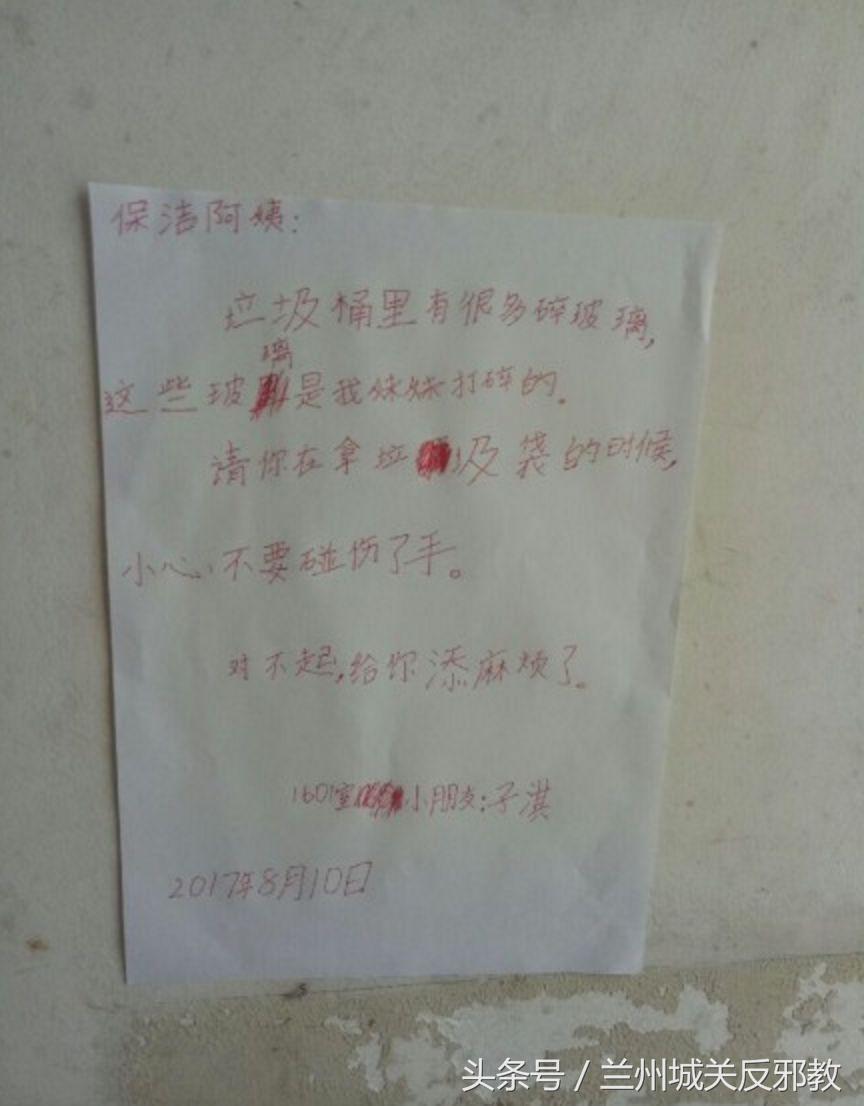 保洁阿姨:
垃圾桶里有很多碎玻璃,
璃
这些玻是我妹妹打碎的。
请你在拿垃圾袋的时候,
小心,不要碰伤了手。
对不起,给你添麻烦了。
1601室小朋友:子淇
2017年8月10日
头条号 / 兰州城关反邪教